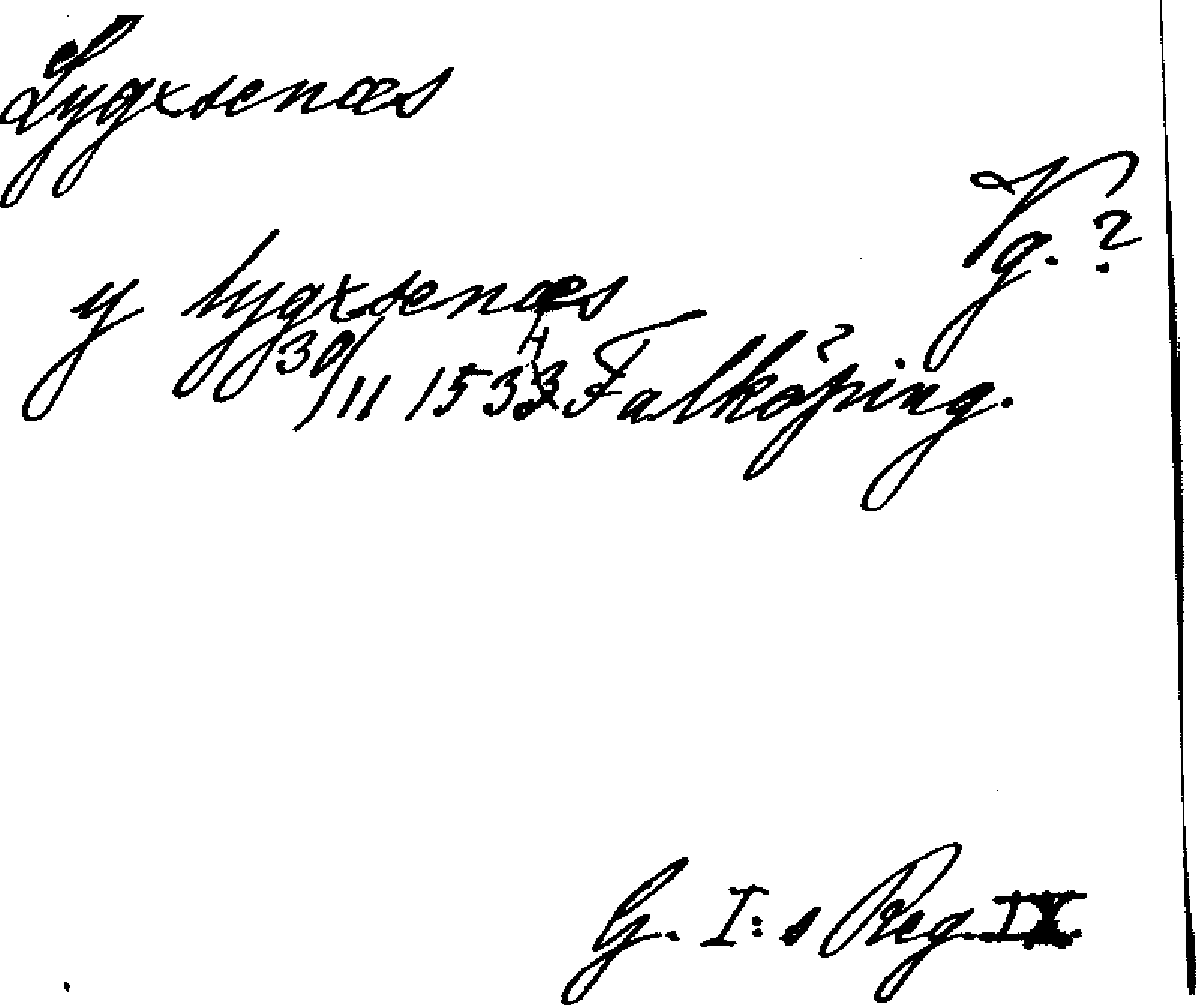 Lygxsenæs
Vg. ?
y lygxsenæs
30/11 1534 Falköping.
G. I:s Reg. IX